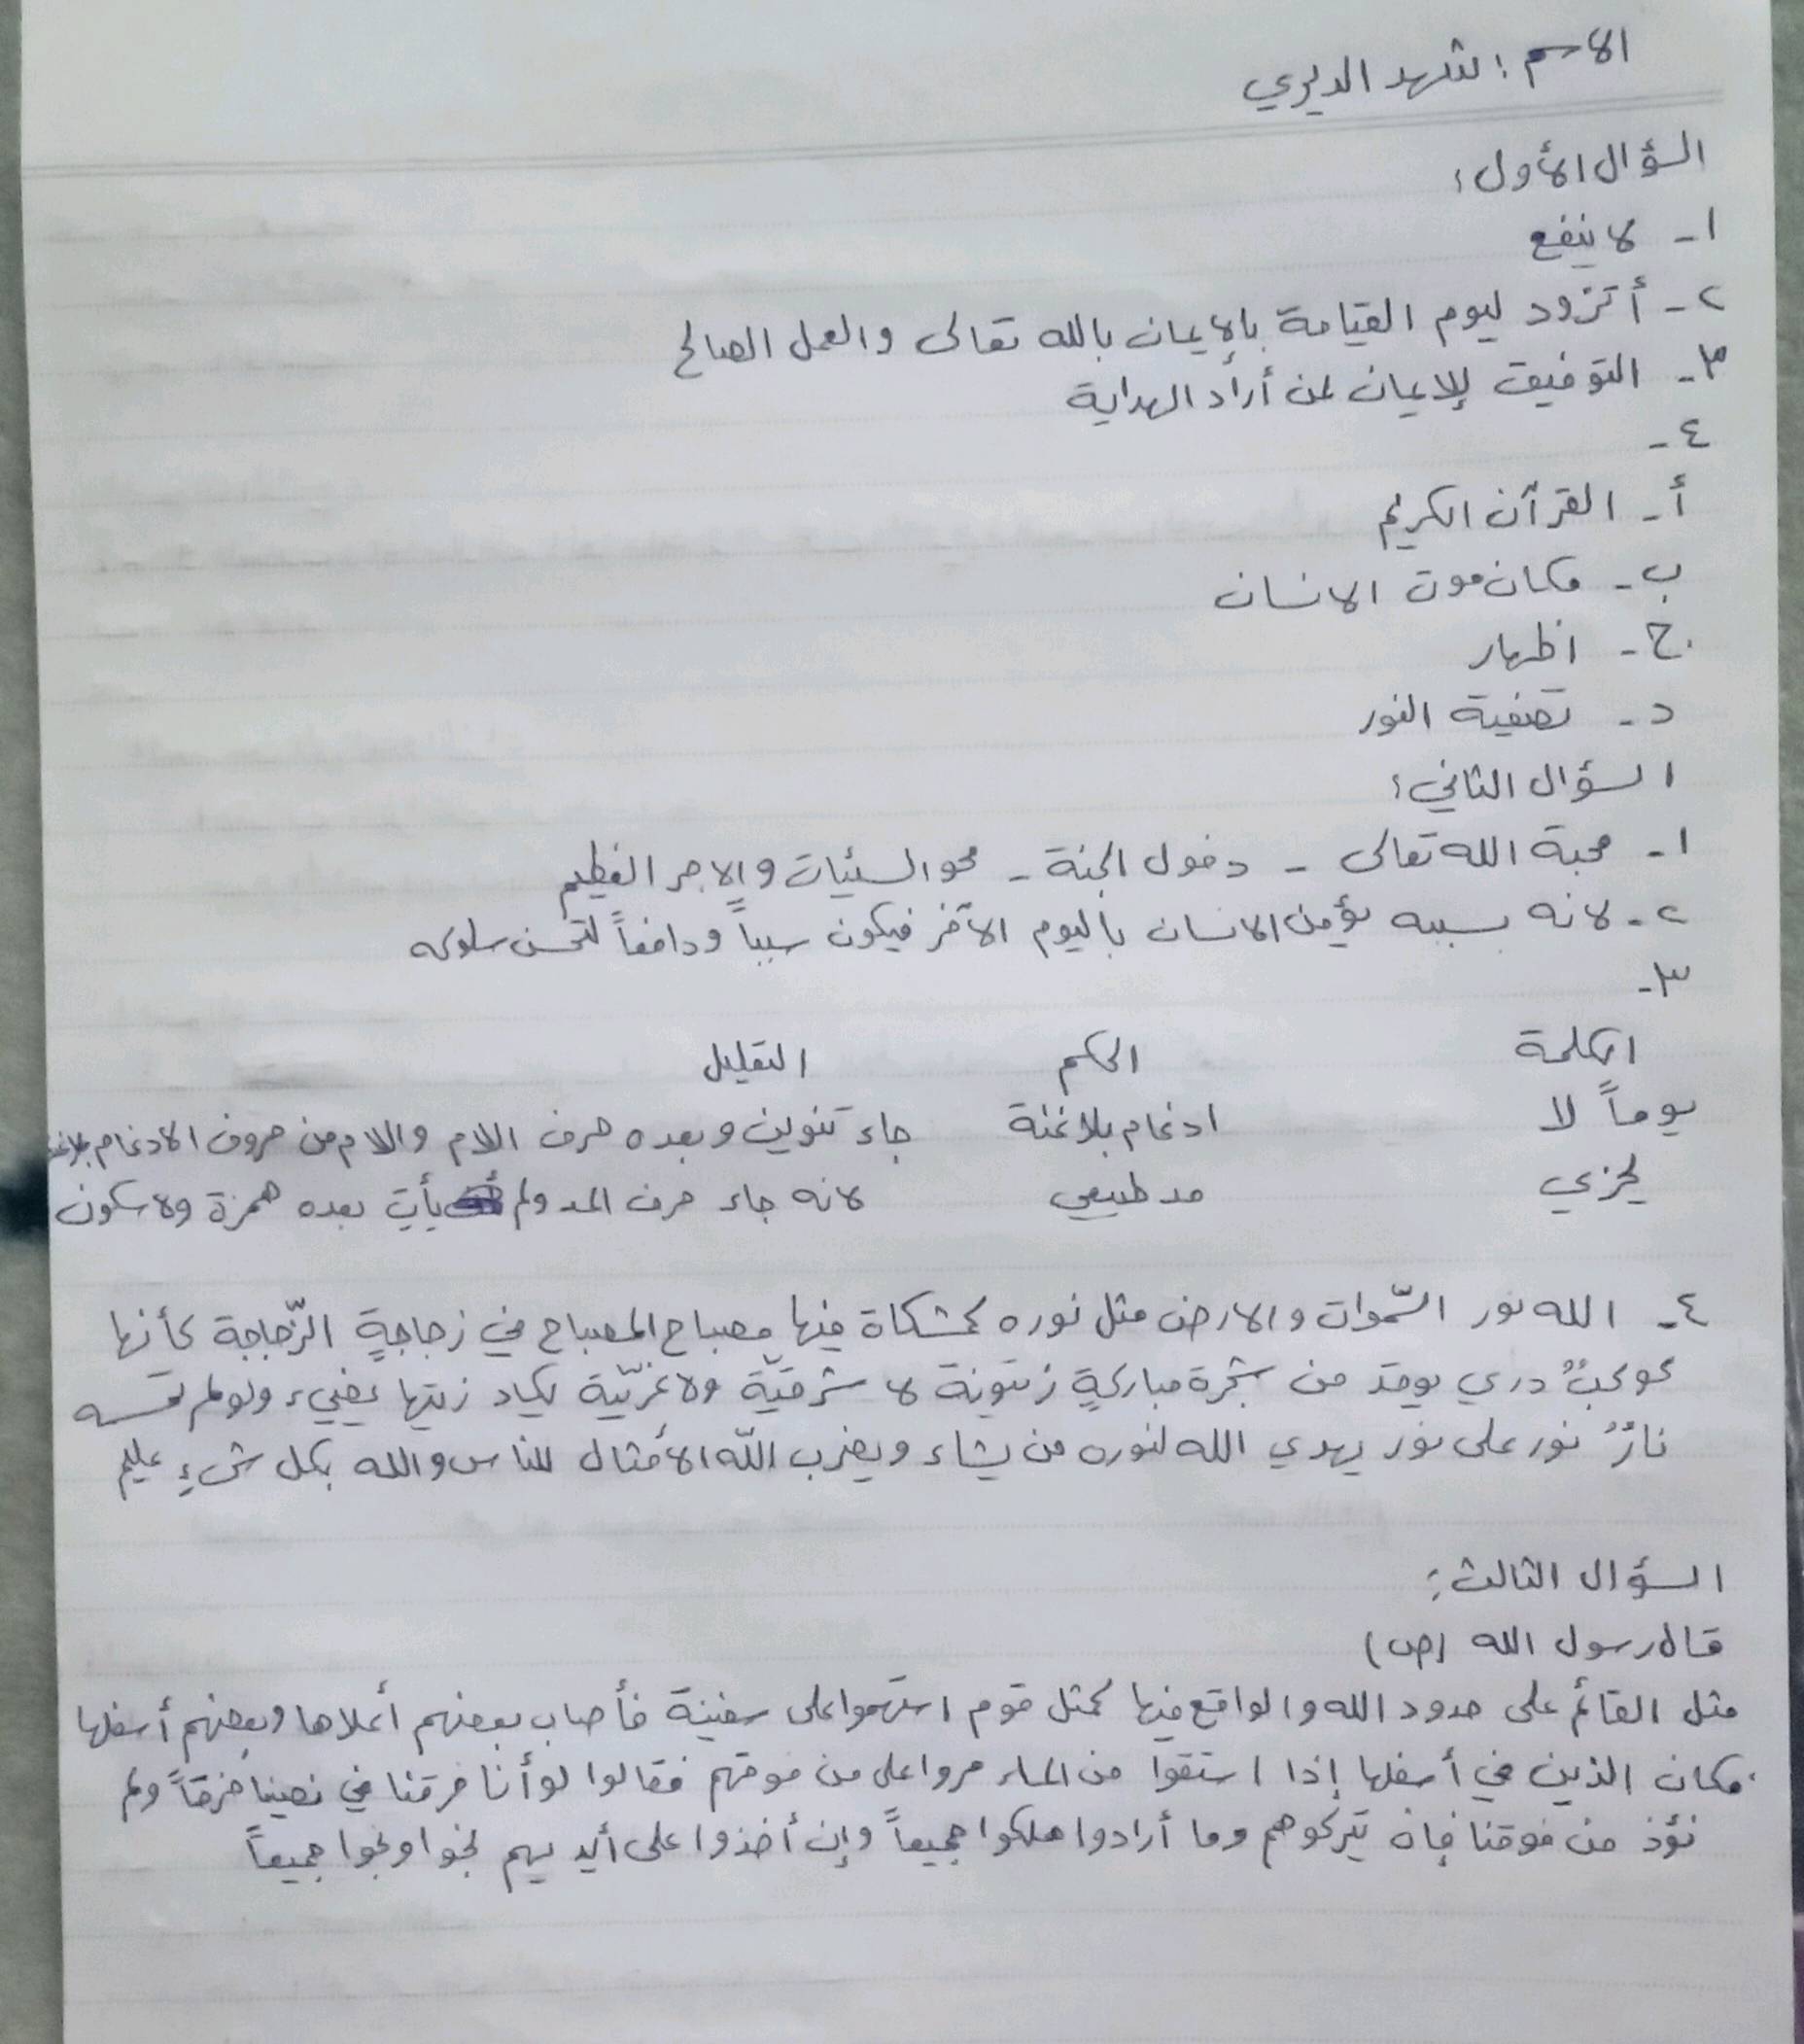 الاسم : شهد الديري
السؤال الأول :
١- لا ينفع
٢- أتزود ليوم القيامة بالإيمان بالله تعالى والعمل الصالح
٣- التوفيق للإيمان لمن أراد الهداية
٤-
أ- القرآن الكريم
ب- مكان موت الانسان
ج- اظهار
د- تصفية النور
السؤال الثاني :
١- محبة الله تعالى - دخول الجنة - محو السيئات والاجر العظيم
٢- لانه بسببه يؤمن الانسان باليوم الآخر فيكون سبباً ودافعاً لتحسن سلوكه
٣-
الكلمة الحكم التعليل
يوماً لا ادغام بلا غنة جاء تنوين وبعده حرف اللام واللام من حروف الادغام بلا غنة
يجزي مد طبيعي لانه جاء حرف المد ولم يأتِ بعده همزة ولا سكون
٤- الله نور السّموات والارض مثل نوره كمشكاة فيها مصباح المصباح في زجاجةٍ الزّجاجة كأنها
كوكبٌ دري يوقد من شجرة مباركةٍ زيتونة لا شرقيّة ولا غربيّة يكاد زيتها يضيء ولو لم تمسسه
نارٌ نور على نور يهدي الله لنوره من يشاء ويضرب اللّه الأمثال للناس والله بكل شيءٍ عليم
السؤال الثالث :
قال رسول الله (ص)
مثل القائم على حدود الله والواقع فيها كمثل قوم استهموا على سفينة فأصاب بعضهم أعلاها وبعضهم أسفلها
فكان الذين في أسفلها إذا استقوا من الماء مروا على من فوقهم فقالوا لو أنا خرقنا في نصيبنا خرقاً ولم
نؤذ من فوقنا فإن يتركوهم وما أرادوا هلكوا جميعاً وإن أخذوا على أيديهم نجوا ونجوا جميعاً